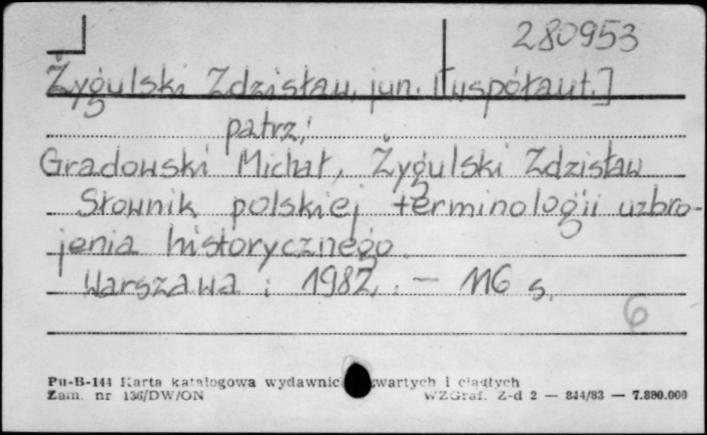 280953
Żygulski Zdzisław, jun. [współaut.]
patrz:
Gradowski Michał, Żygulski Zdzisław
Słownik polskiej terminologii uzbro-
jenia historycznego.
Warszawa : 1982. - 116 s.
6
Pu-B-144 Karta katalogowa wydawnic wartych i ciągłych
Zam. nr 136/DW/ON WZGraf. Z-d 2 — 844/83 — 7.880.000